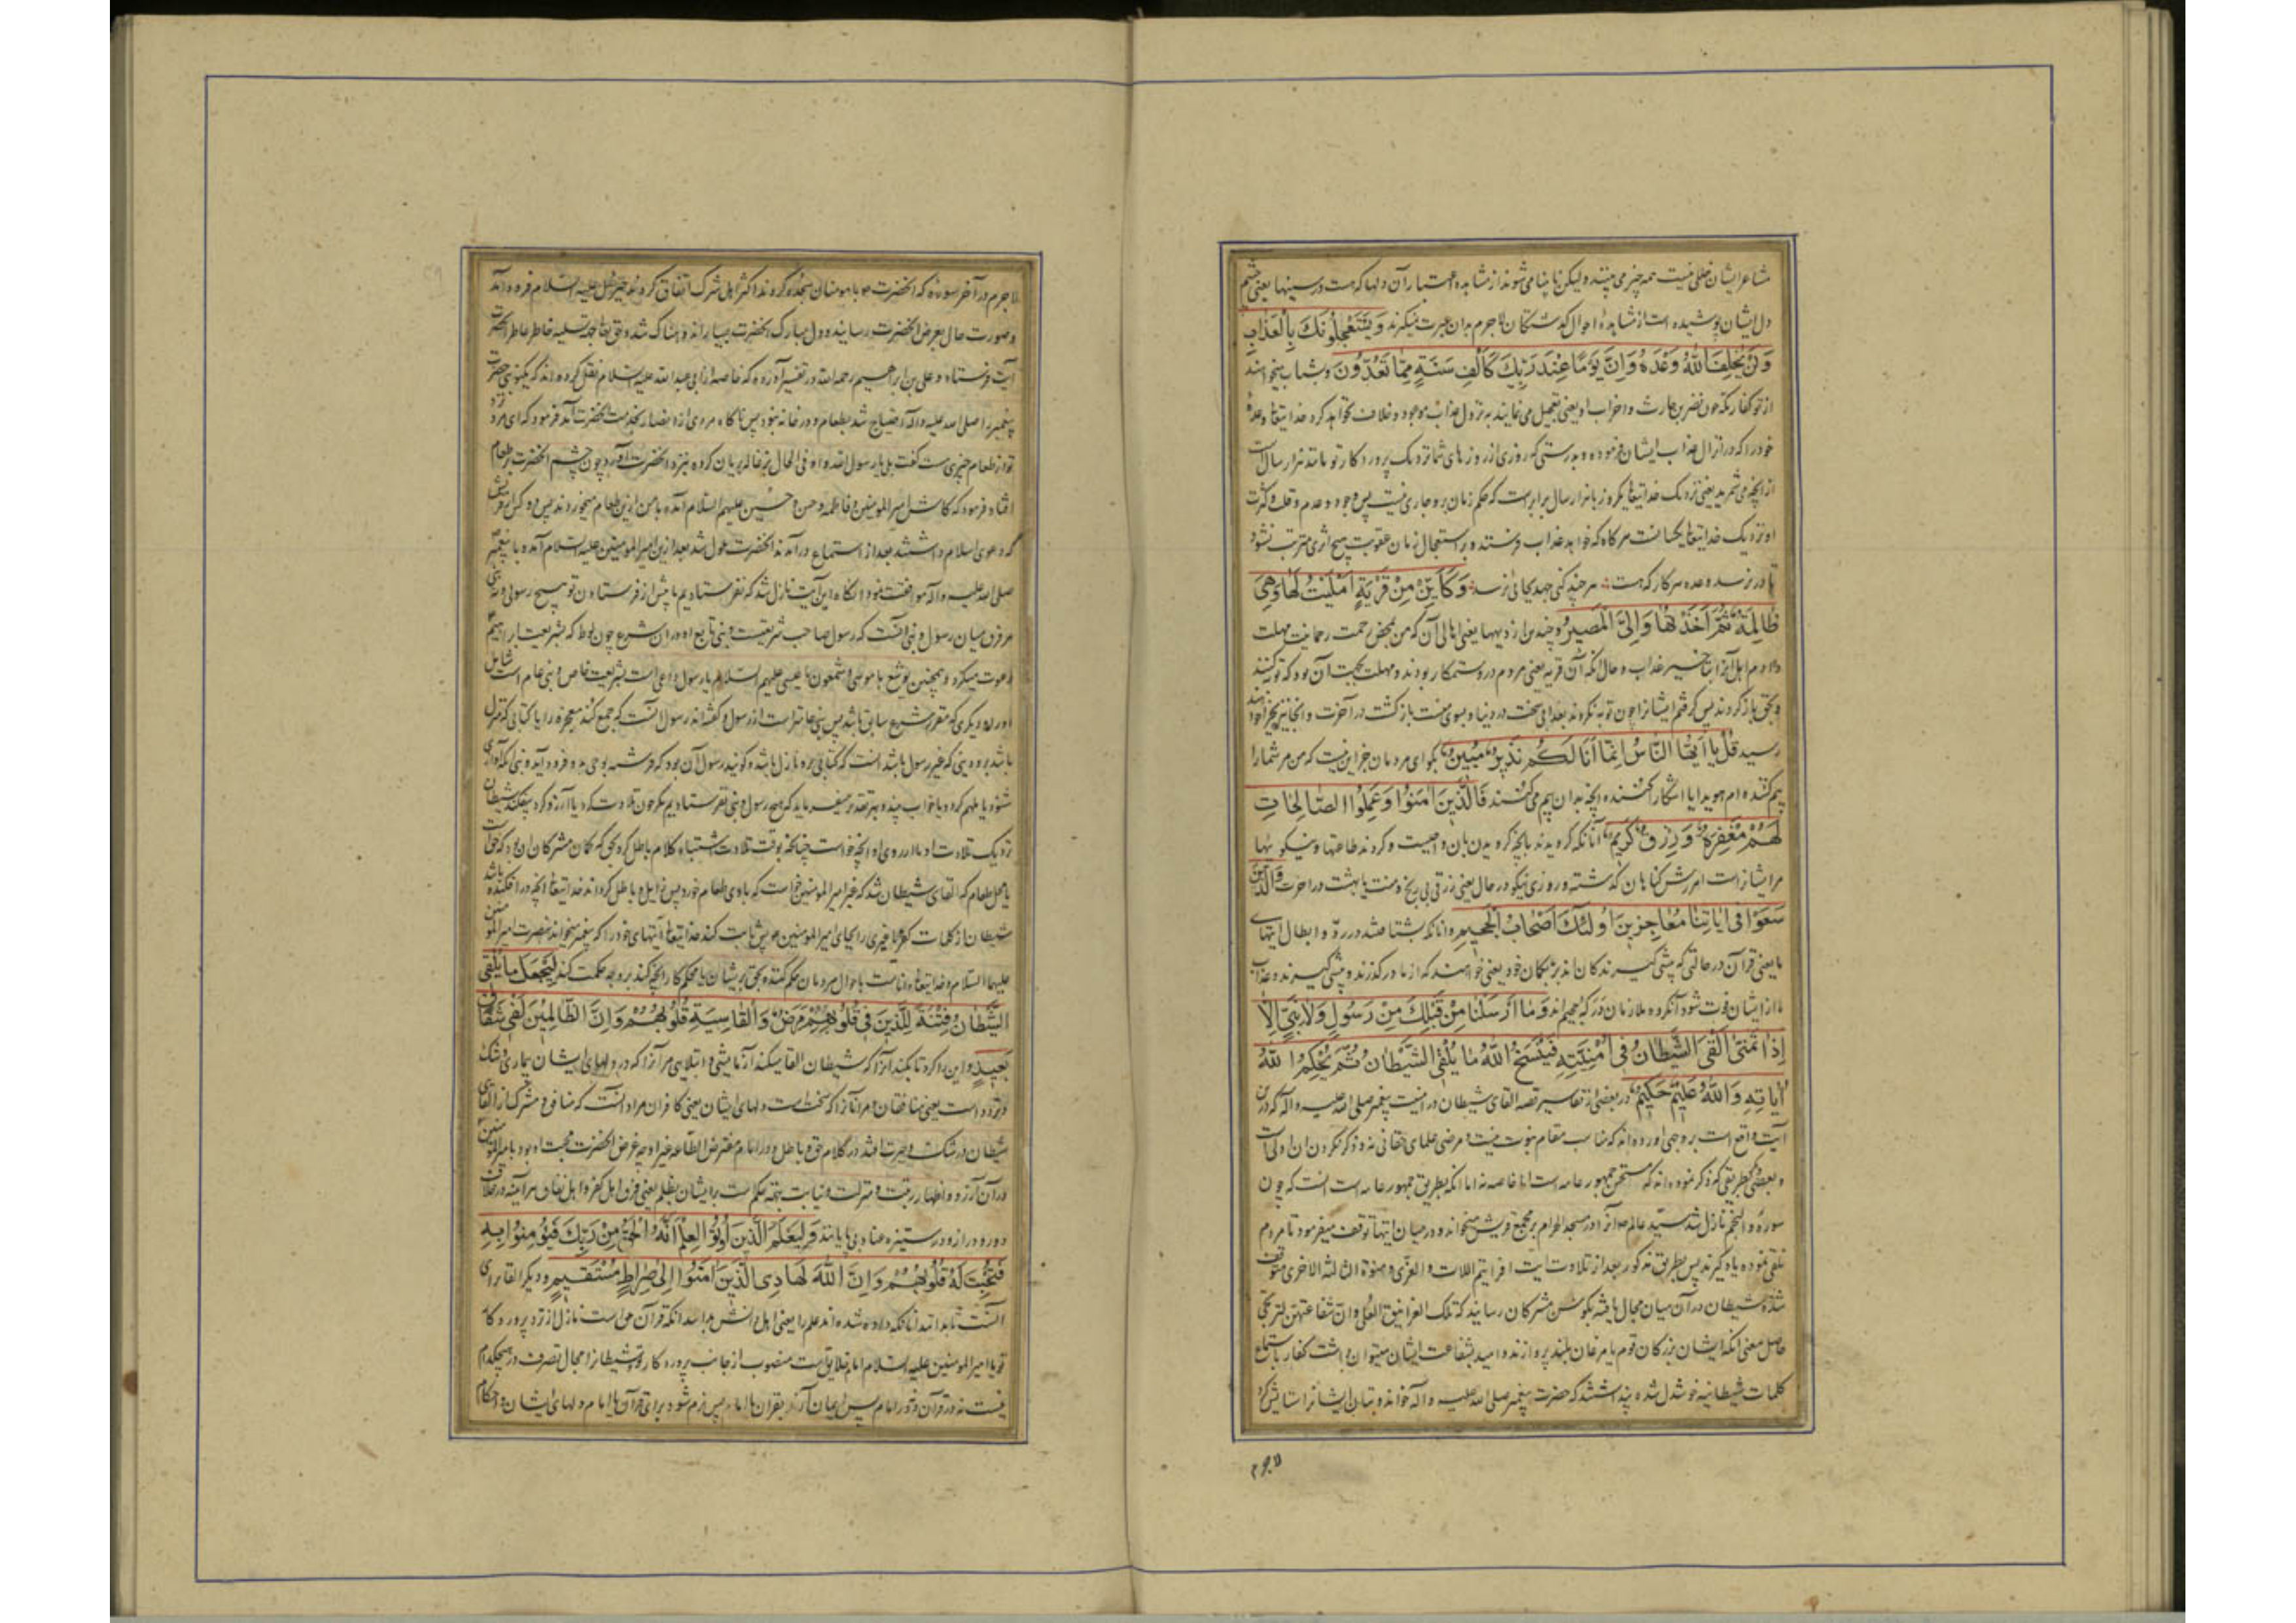 مشاعر ایشان خللی نیست همه چیز می بینند و لیکن نابینا می شوند از مشاهده اعتبار آن دلها که هست در سینها یعنی چشم
دل ایشان پوشیده است از مشاهدهٔ احوال گذشتگان لاجرم بدان عبرت نمیگیرند وَيَسْتَعْجِلُونَكَ بِالْعَذَابِ
وَلَنْ يُخْلِفَ اللّٰهُ وَعْدَهُ وَاِنَّ يَوْمًا عِنْدَ رَبِّكَ كَاَلْفِ سَنَةٍ مِمَّا تَعُدُّونَ و بشتاب میخواهند
از تو کفار مکه چون نضر بن حارث و احزاب او یعنی تعجیل می نمایند به نزول عذاب موعود و خلاف نخواهد کرد خدایتعا وعدهٔ
خود را که در انزال عذاب ایشان فرموده و بدرستی که روزی از روزهای شما نزدیک پروردکار تو مانند هزار سال است
از آنچه می شمرید یعنی نزدیک خدایتعا یکروز با هزار سال برابرست که حکم زمان برو جاری نیست پس وجود و عدم و قلت و کثرت
او نزدیک خدایتعا یکسانست هرکاه که خواهد عذاب فرستد و بر استعجال زمان عقوبت هیچ اثری مترتب نشود
تا در نرسد وعده هر کار که هست هر چند کنی جهد بجائی نرسد وَكَاَيِّنْ مِنْ قَرْيَةٍ اَمْلَيْتُ لَهَا وَهِيَ
ظَالِمَةٌ ثُمَّ اَخَذْتُهَا وَاِلَيَّ الْمَصِيرُ و چند بار از دیهها یعنی اهالی آن که من بمحض رحمت رحمانیت مهلت
دادم اهل آنرا بتاخیر عذاب و حال آنکه آن قریه یعنی مردم در و ستمکار بودند و مهلت بجهت آن بود که توبه کنند
و بحق باز کردند پس کرفتم ایشانرا چون توبه نکردند بعذابی سخت در دنیا و بسوی منست بازکشت در آخرت و آنجا نیز بجزا خواهند
رسید قُلْ يَا اَيُّهَا النَّاسُ اِنَّمَا اَنَا لَكُمْ نَذِيرٌ مُبِينٌ بکو ای مردمان جز این نیست که من مر شما را
بیم کننده ام هویدا یا آشکار کننده آنچه بدان بیم می کنند فَالَّذِينَ اٰمَنُوا وَعَمِلُوا الصَّالِحَاتِ
لَهُمْ مَغْفِرَةٌ وَرِزْقٌ كَرِيمٌ آنانکه کرویدند بآنچه کرویدن بآن واجبست و کردند طاعتها و نیکوئیها
مر ایشانراست آمرزش کناهان که گذشته و روزی نیکو در حال یعنی رزقی بی رنج و منت یا بهشت در آخرت وَالَّذِينَ
سَعَوْا فِي اٰيَاتِنَا مُعَاجِزِينَ اُولٰئِكَ اَصْحَابُ الْجَحِيمِ و آنانکه بشتافتند در ردّ و ابطال آیتهاے
ما یعنی قرآن در حالتی که پیشی کیرندکان اند بر ما بکمان خود یعنی خواهند که از ما درکذرند و پیشی کیرند و عذاب
ما از ایشان فوت شود آنکروه ملازمان درک جحیم اند وَمَا اَرْسَلْنَا مِنْ قَبْلِكَ مِنْ رَسُولٍ وَلَا نَبِيٍّ اِلَّا
اِذَا تَمَنّٰى اَلْقَى الشَّيْطَانُ فِي اُمْنِيَّتِهِ فَيَنْسَخُ اللّٰهُ مَا يُلْقِي الشَّيْطَانُ ثُمَّ يُحْكِمُ اللّٰهُ
اٰيَاتِهِ وَاللّٰهُ عَلِيمٌ حَكِيمٌ در بعضی از تفاسیر قصه القای شیطان در امنیت پیغمبر صلی الله علیه و اله که درین
آیت واقع است بر وجهی آورده اند که مناسب مقام نبوت نیست و مرضی علمای حقانی نه و ذکر نکردن آن اولی است
و بعضی بطریقی که ذکر نموده اند که مستحسن جمهور عامه است اما خاصه نه اما آنکه بطریق جمهور عامه است آنست که چون
سورهٔ والنجم نازل شد سید عالم ص آنرا در مسجد الحرام بر مجمع قریش میخواند و در میان آیتها توقف میفرمود تا مردم
تلقی نموده یاد کیرند پس بطریق مذکور بعد از تلاوت آیت افرایتم اللات و العزّی و منوة الثالثة الاخری متوقف
شده شیطان در آن میان مجال یافته بکوش مشرکان رسانید که تلک الغرانیق العلی و انّ شفاعتهنّ لترتجی
حاصل معنی آنکه ایشان بزرکان قوم یا مرغان بلند پروازند و امید بشفاعت ایشان میتوان داشت کفار باستماع
کلمات شیطانیه خوشدل شده پنداشتند که حضرت پیغمبر صلی الله علیه و آله خوانده و بتان ایشانرا ستایش کرد
لاجرم
لاجرم در آخر سوره که آنحضرت ص با مومنان سجده کردند اکثر اهل شرک اتفاق کردند جبرئیل علیه السلام فرود آمد
و صورت حال بعرض آنحضرت رسانید و دل مبارک آنحضرت بسیار اندوهناک شد و حق تعا بجهة تسلیه خاطر عاطر آنحضرت
آیت فرستاد و علی بن ابراهیم رحمه الله در تفسیر آورده که خاصه از ابی عبدالله علیه السلام نقل کرده اند که یکنوبتی حضرت
پیغمبر را صلی الله علیه و آله احتیاج شد بطعام و در خانه نبود پس ناکاه مردی از انصار بخدمت آنحضرت آمد فرمود که ای مرد نزد
تو از طعام چیزی هست گفت بلی یا رسول الله و او فی الحال بزغاله بریان کرده بنزد آنحضرت آورد چون چشم آنحضرت بر طعام
افتاد فرمود که کاش امیر المومنین و فاطمه و حسن و حسین علیهم السلام آمده با من ازین طعام میخوردند پس دو کس از قریش
که دعوی اسلام داشتند بعد از استماع درآمدند آنحضرت ملول شد بعد ازین امیر المومنین علیه السلام آمده با پیغمبر
صلی الله علیه و آله موافقت نمود آنکاه این آیت نازل شد که نفرستادیم ما پیش از فرستادن تو هیچ رسولی و نه نبی
و فرق میان رسول و نبی آنست که رسول صاحب شریعتست و نبی تابع او در آن شرع چون لوط که بشریعت ابراهیم
دعوت میکرد و همچنین یوشع با موسی و شمعون با عیسی علیهم السلام یا رسول داعی است بشریعت خاص و نبی عام است شامل
او را و دیکری که مقرر شرع سابق باشد پس نبی عامتر است از رسول و گفته اند رسول آنست که جمع کند معجزه را با کتابی که منزل
باشد برو و نبی که غیر رسول باشد آنست که کتابی برو نازل نباشد و کویند رسول آن بود که فرشته بوحی برو فرود آید و نبی آنکه آوازی
شنود یا ملهم کردد یا خواب بیند و بهر تقدیر میفرماید که هیچ رسول و نبی نفرستادیم مکر چون تلاوت کرد یا آرزو کرد بیفکند شیطان
نزدیک تلاوت او یا آرزوی او آنچه خواست چنانکه بوقت تلاوت اشتباه کلام باطل کرد بحق که کمان مشرکان آن بود که خواست
شیطان از کلمات کفر یا غیری را بجای امیر المومنین خویش ثابت کند خدایتعا آیتهای خود را که پیغمبر میخواند حضرت امیر المومنین
علیهما السلام و خدایتعا داناست باحوال مردمان حکم کننده بحق بر ایشان یا محکم کار آنچه کند بر وجه حکمت کند لِيَجْعَلَ مَا يُلْقِي
الشَّيْطَانُ فِتْنَةً لِلَّذِينَ فِي قُلُوبِهِمْ مَرَضٌ وَالْقَاسِيَةِ قُلُوبُهُمْ وَاِنَّ الظَّالِمِينَ لَفِي شِقَاقٍ
بَعِيدٍ و این را کرد تا بکند آنرا که شیطان القا میکند آزمایشی و ابتلایی مر آنرا که در دلهای ایشان بیماری و شک
و تردد است یعنی منافقان و مر آنانرا که سخت است دلهای ایشان یعنی کافران مراد آنست که منافق و مشرک از القای
شیطان در شک و حیرت افتد در کلام حق و باطل و در امام مفترض الطاعه غیر او چه غرض آنحضرت محبت او بود با امیر المومنین
در آن آرزو و اظهار رتبت و منزلت و نیابت بتحقیق ستمکارست بر ایشان بظلم یعنی فرق اهل کفر و اهل نفاق هر آینه در خلاف
دور و دراز و در ستیزه و عناد بی پایانند وَلِيَعْلَمَ الَّذِينَ اُوتُوا الْعِلْمَ اَنَّهُ الْحَقُّ مِنْ رَبِّكَ فَيُؤْمِنُوا بِهِ
فَتُخْبِتَ لَهُ قُلُوبُهُمْ وَاِنَّ اللّٰهَ لَهَادِ الَّذِينَ اٰمَنُوا اِلٰى صِرَاطٍ مُسْتَقِيمٍ و دیکر القا برای
آنست تا بدانند آنانکه داده شده اند علم را یعنی اهل دانش بدانند آنکه قرآن حق است نازل از نزد پروردکار
تو یا امیر المومنین علیه السلام امام خلایق است منصوب از جانب پروردکار تو و شیطانرا مجال تصرف در هیچکدام
نیست نه در قرآن و نه در امام پس ایمان آرند بقرآن یا امام پس نرم شود برای قرآن یا امام دلهای ایشان و احکام